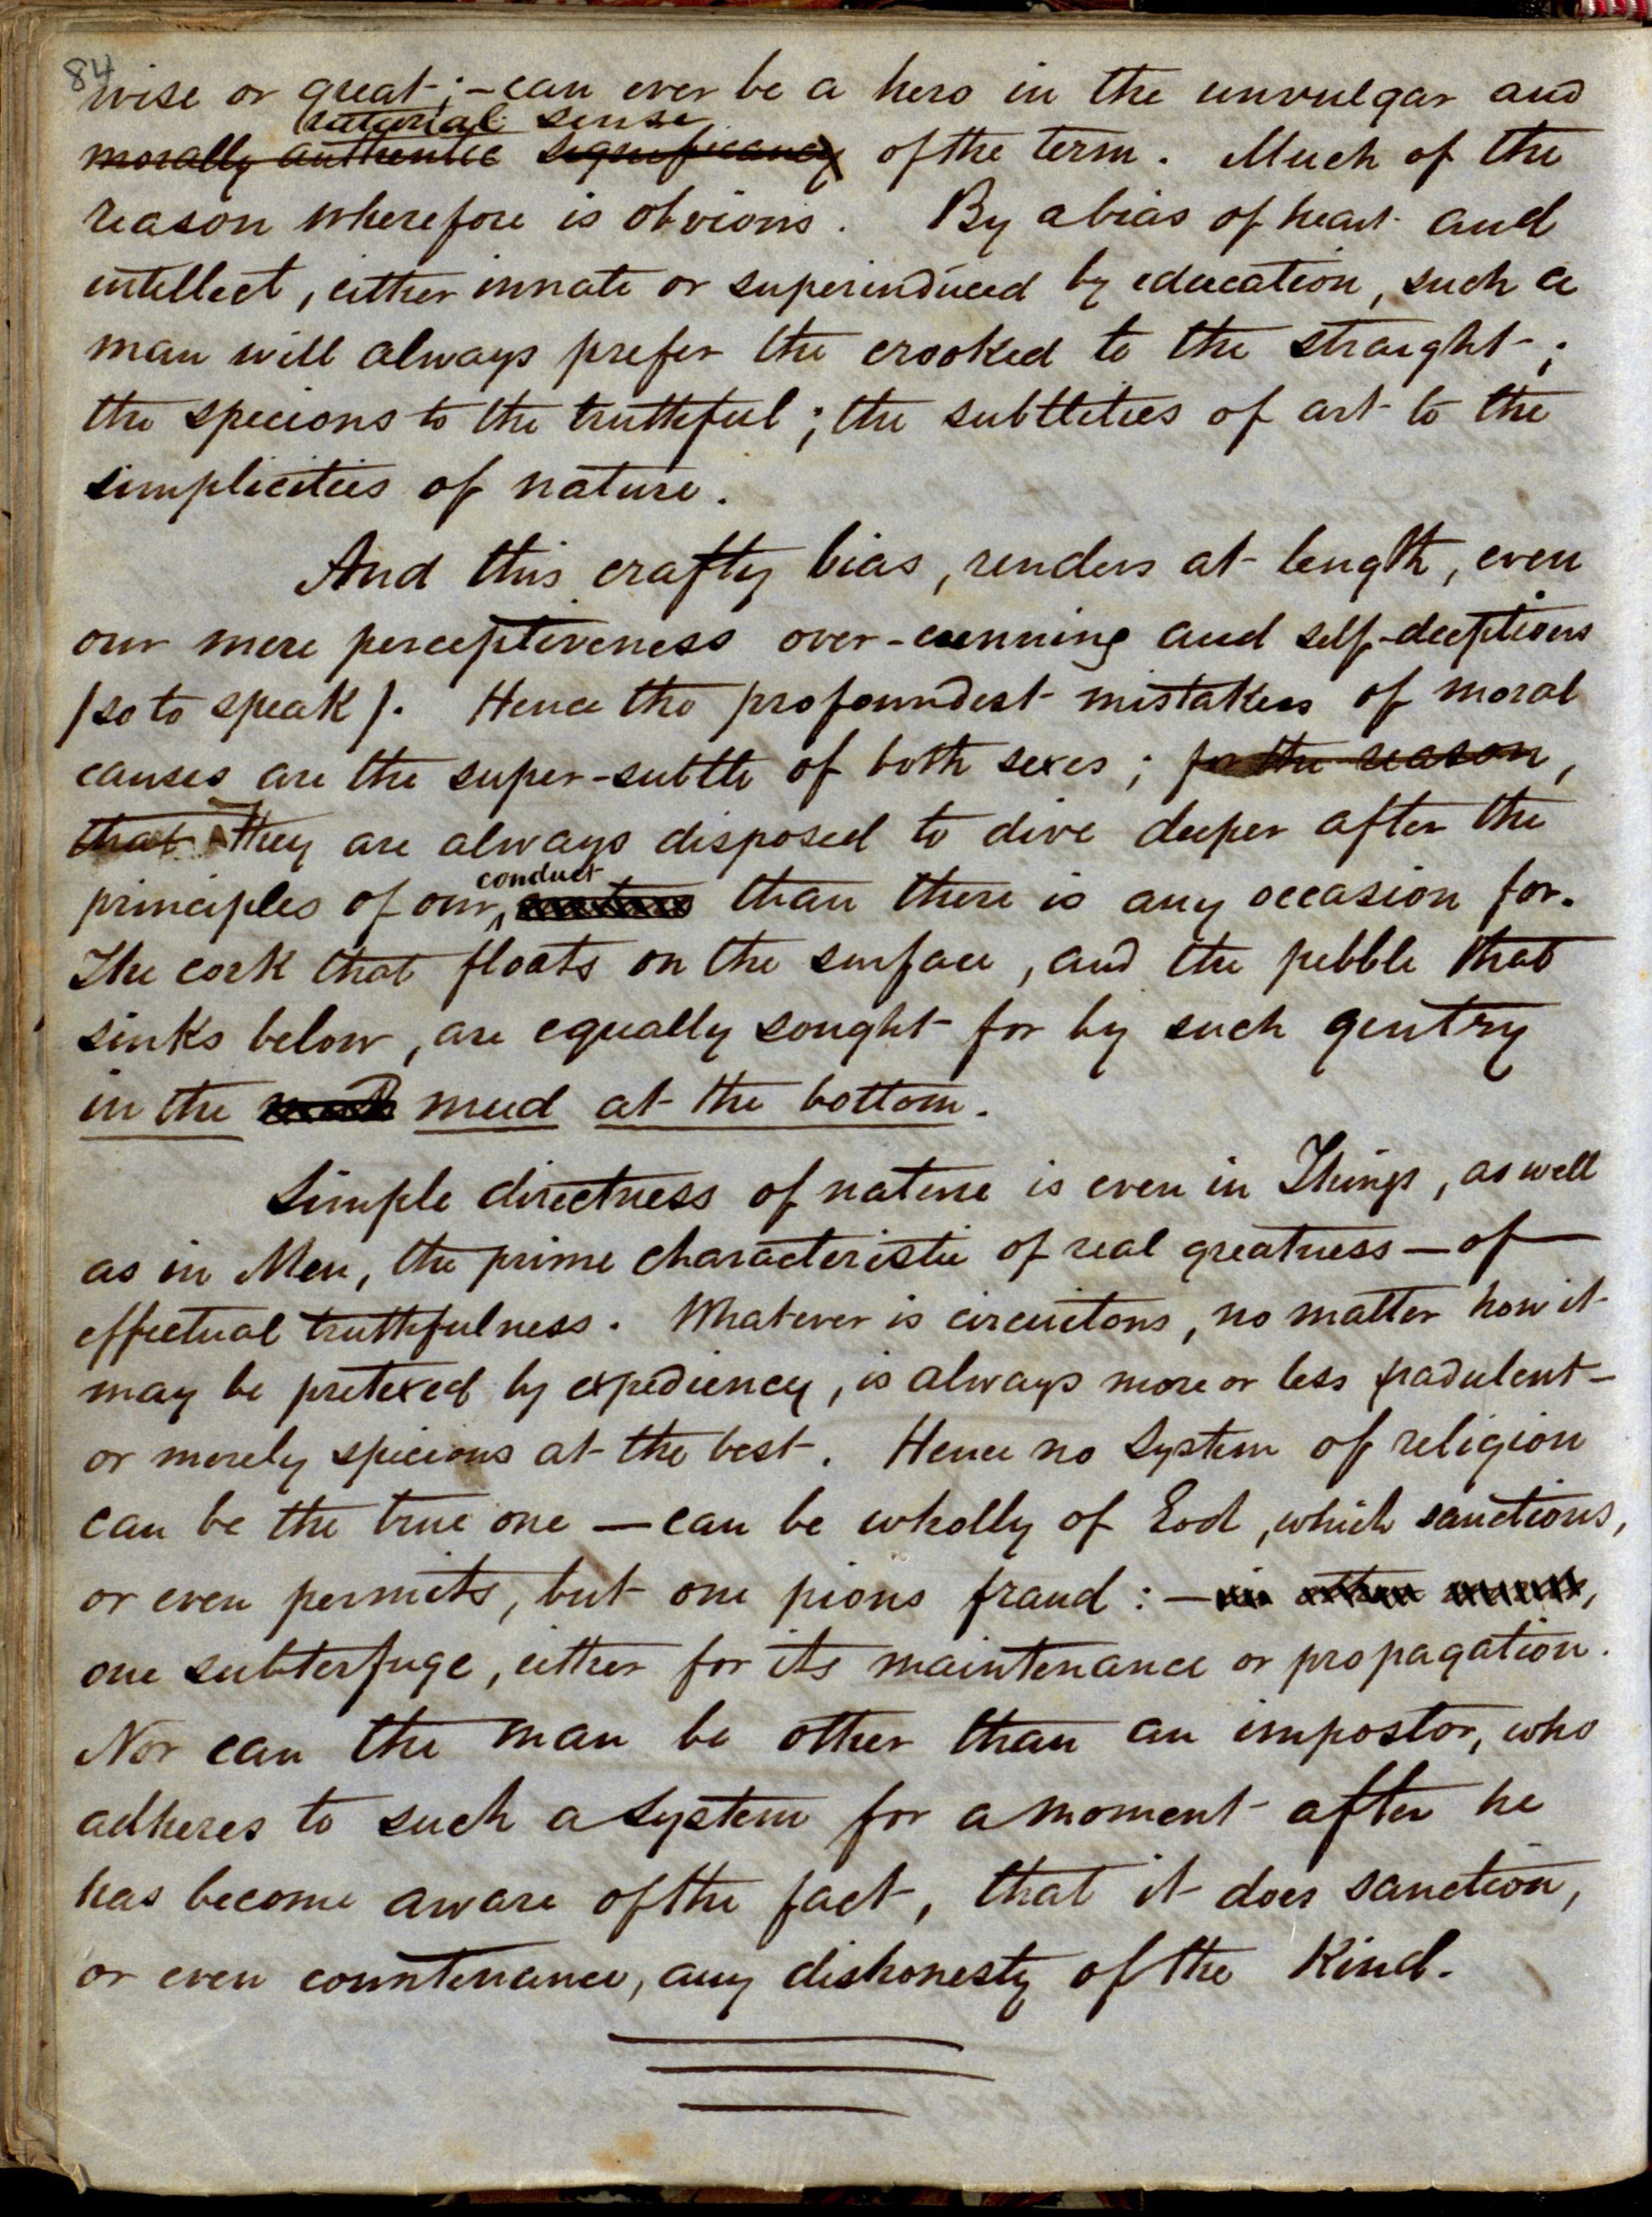 84
wise or great;—can ever be a hero in the unvulgar and
sense
morally authentic significancy of the term. Much of the
reason wherefore is obvious. By a bias of heart and
intellect, either innate or superinduced by education, such a
man will always prefer the crooked to the straight;
the specious to the truthful; the subtleties of art to the
simplicities of nature.
And this crafty bias, renders at length, even
our mere perceptiveness over-cunning and self-deeptious
(so to speak). Hence the profoundest mistakers of moral
causes are the super-subtle of both sexes; for the reason,
that they are always disposed to dive deeper after the
conduct
principles of our than there is any occasion for.
The cork that floats on the surface, and the pebble that
sinks below, are equally sought for by such gentry
in the mud at the bottom.
Simple directness of nature is even in Things, as well
as in Men, the prime characteristic of real greatness—of
effectual truthfulness. Whatever is circuitous, no matter how it
may be pretexed by expediency, is always more or less fradulent—
or merely specious at the best. Hence no system of religion
can be the true one—can be wholly of God, which sanctions,
or even permits, but one pious fraud:—in other words,
one subterfuge, either for its maintenance or propagation.
Nor can the man be other than an impostor, who
adheres to such a system for a moment after he
has become aware of the fact, that it does sanction,
or even countenance, any dishonesty of the kind.